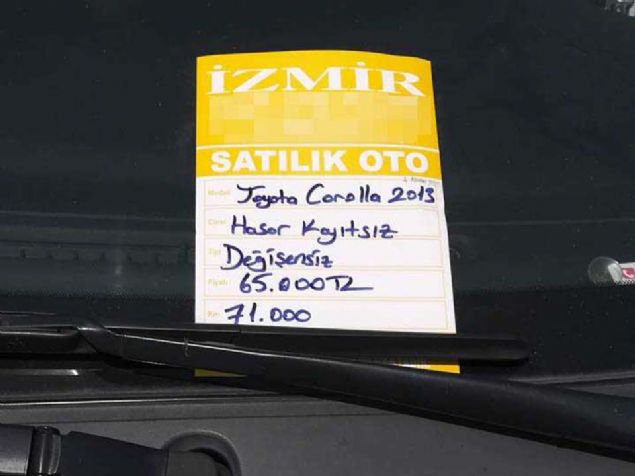 İZMİR
SATILIK OTO
Model: Toyota Corolla 2013
Cinsi Hasar Kayıtsız
Tipi Değişensiz
Fiyatı 65.000 TL
Km: 71.000